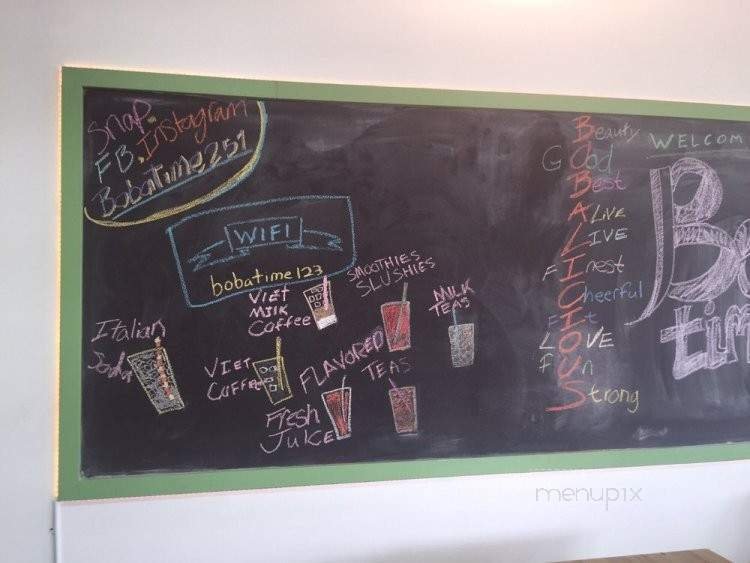 Snap.
FB.Instagram
BobaTime251
WIFI
bobatime123
VIET
MILK
Coffee
SMOOTHIES
SLUSHIES
MILK
TEAS
Italian
Soda
VIET
Coffee
FLAVORED
TEAS
Fresh
JUICE
Beauty
GOod
Best
ALIVE
LIVE
FInest
Cheerful
FIt
LOVE
FUn
Strong
WELCOM
Bo
tim
menupix